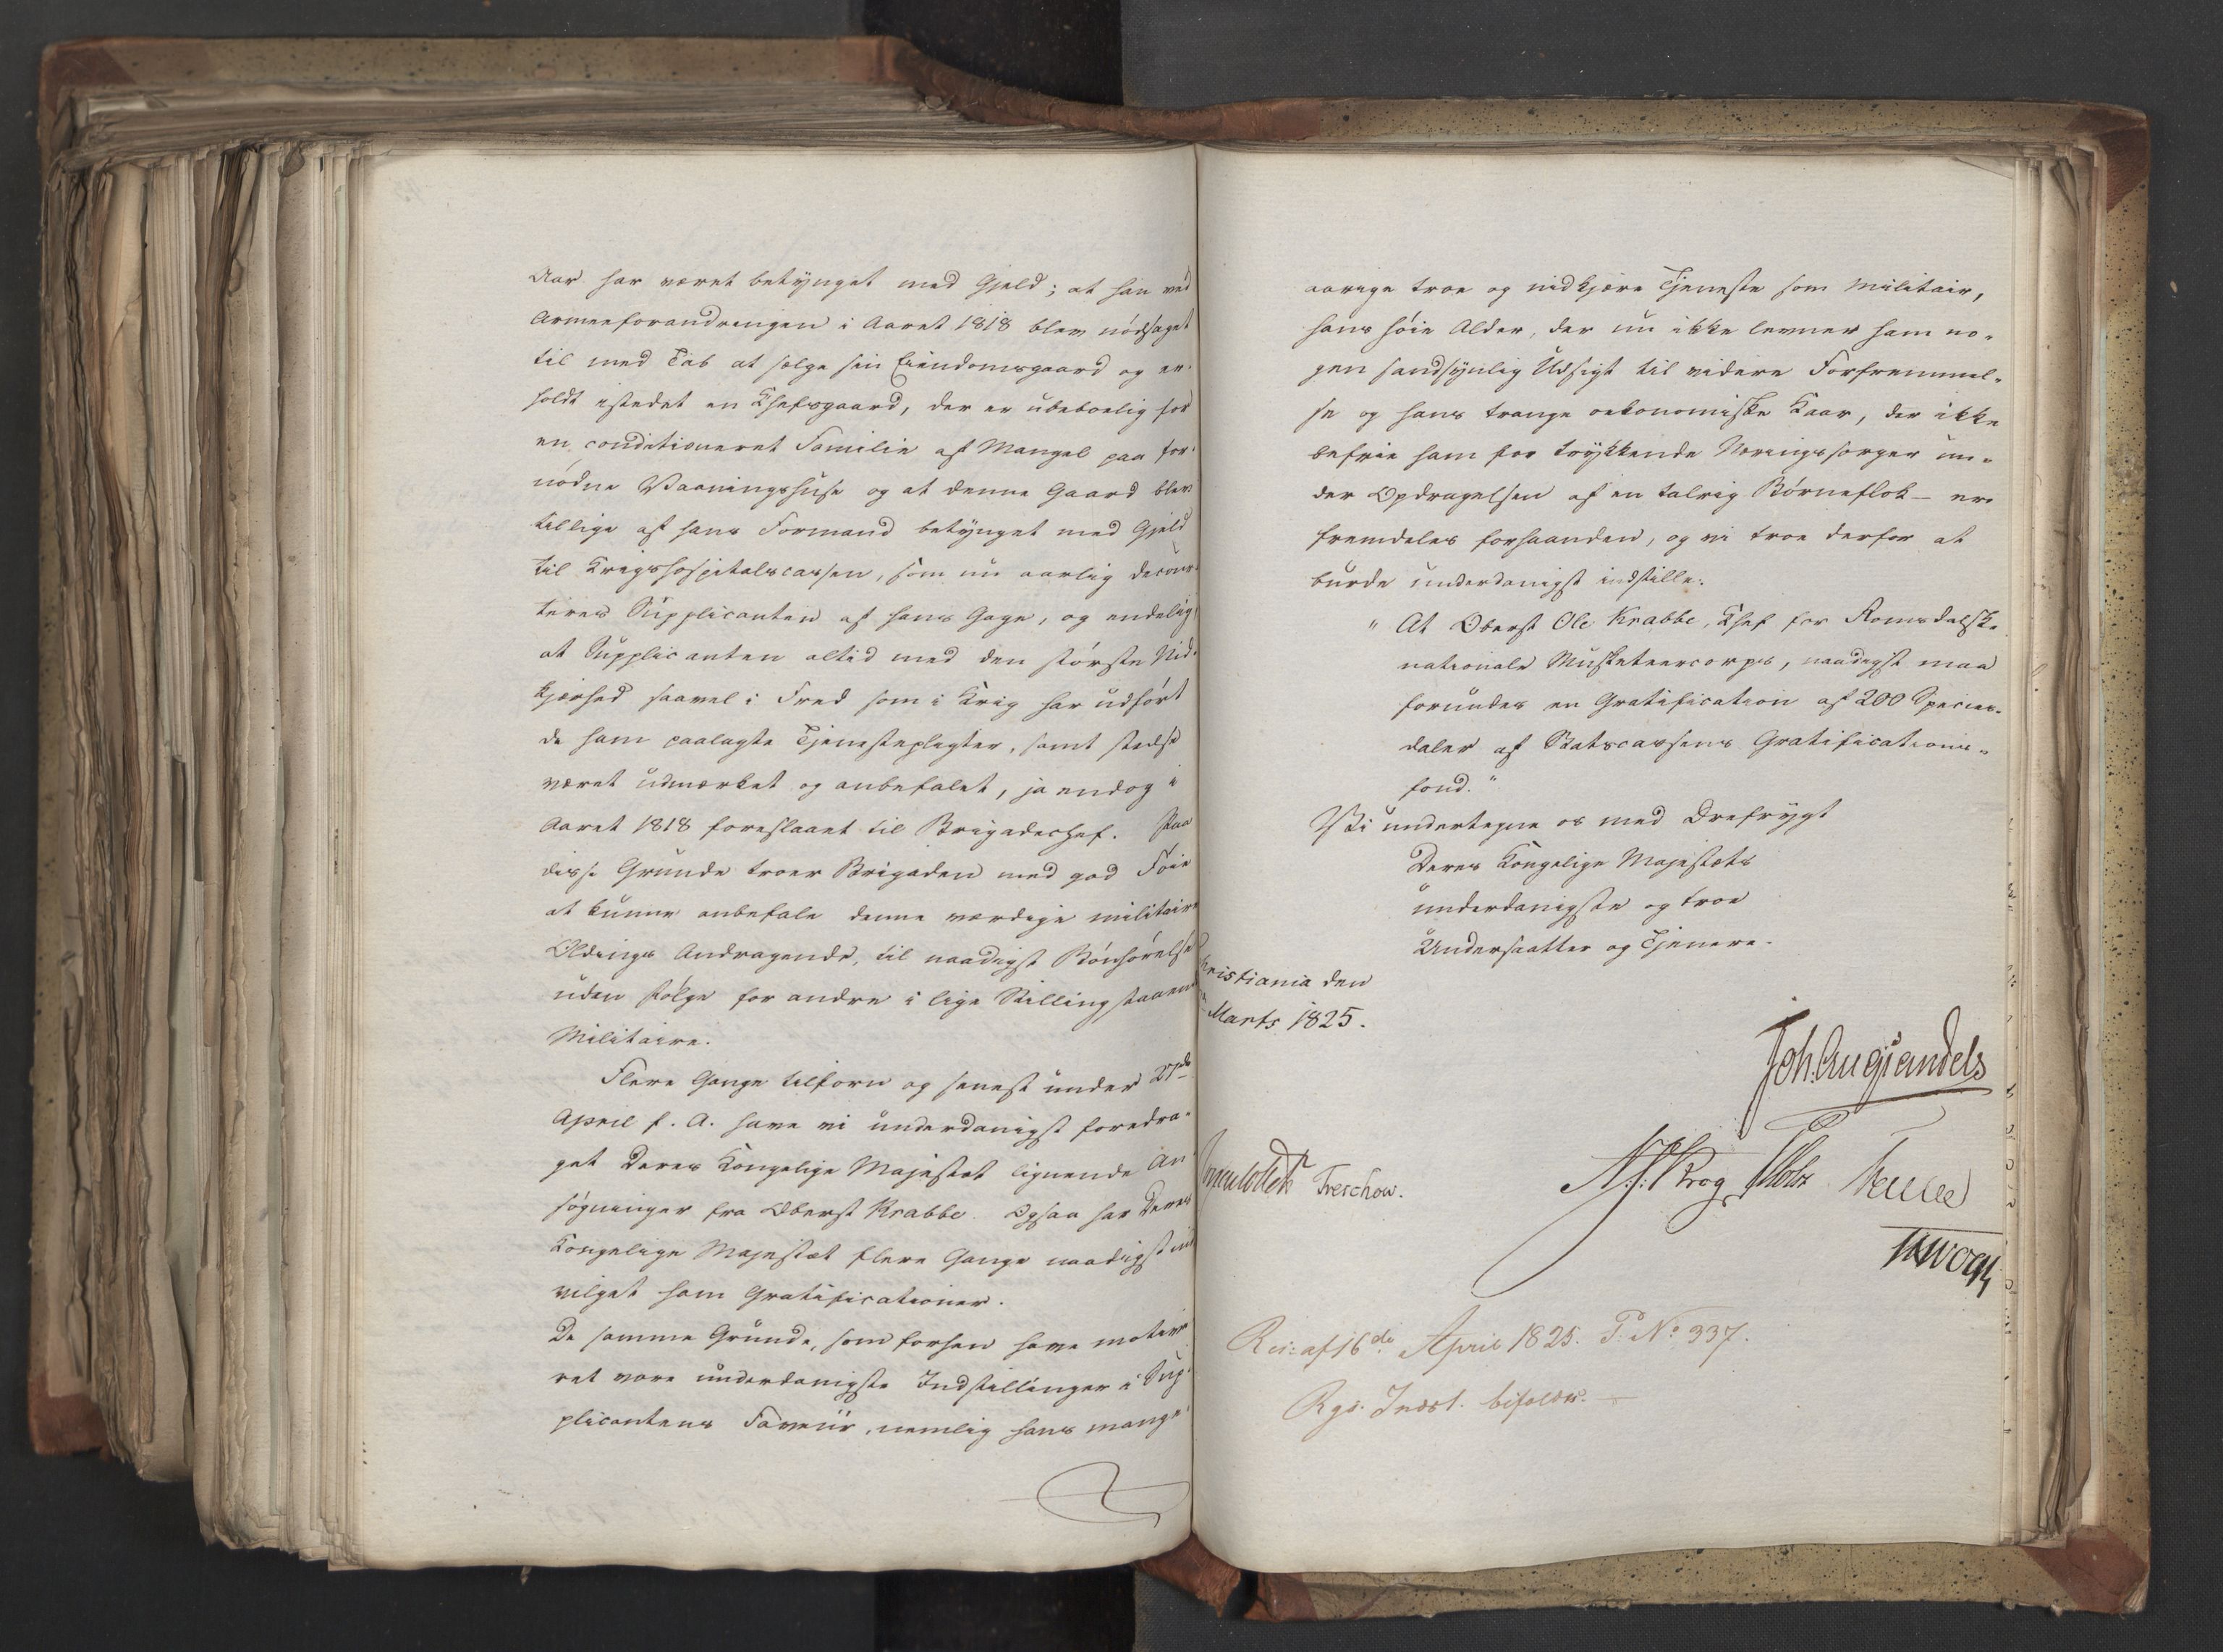 Aar har været betynget med Gjeld; at han ved
Armeeforandringen i Aaret 1818 blev nödsaget
til med Tab at sælge sin Eiendomsgaard og er-
holdt istedet en Chefsgaard, der er ubeboelig for
en conditioneret Familie af Mangel paa for-
nödne Vaaningshuse og at denne Gaard blev
tillige af hans Formand betynget med Gjeld
til Krigshospitalscassen, som nu aarlig decour-
teres Supplicanten af hans Gage, og endelig,
at Supplicanten altid med den störste Nid-
kjærhed saavel i Fred som i Krig har udfört
de ham paalagte Tjenestepligter, samt stedse
været udmærket og anbefalet, ja endog i
Aaret 1818 foreslaaet til Brigadechef. Paa
disse Grunde troer Brigaden med god Föie
at kunne anbefale denne værdige militaire
Oldings Andragende, til naadigst Bönhörelse
uden Fölge for andre i lige Stilling staaende
Militaire.
Flere Gange tilforn og senest under 27de
April f. A. have vi underdanigst foredra-
get Deres Kongelige Majestæt lignende An-
sögninger fra Oberst Krabbe. Ogsaa har Deres
Kongelige Majestæt flere Gange naadigst ind
vilget ham Gratificationer.
De samme Grunde, som forhen have motive
ret vore underdanigste Indstillinger i Sup-
plicantens Faveur, nemlig hans mange-
aarige troe og nidkjære Tjeneste som Militair,
hans höie Alder, der nu ikke levner ham no-
gen sandsynlig Udsigt til videre Forfremmel-
se og hans trange oekonomiske Kaar, der ikke
befrie ham for trykkende Næringssorger un-
der Opdragelsen af en talrig Börneflok – ere
fremdeles forhaanden, og vi troe derfor at
burde underdanigst indstille:
" At Oberst Ole Krabbe, Chef for Romsdalske
nationale Musketeercorps, naadigst maa
forundes en Gratification af 200 Species-
daler af Statscassens Gratifications-
fond."
Vi undertegne os med Ærefrygt
Deres Kongelige Majestæts
underdanigste og troe
Undersaatter og Tjenere.
Christiania den
Marts 1825.
Joh. Aug. Sandels
Sommerfeldt Treschow. Krog Motzfeldt
Res: af 16de April 1825. P. No 337.
Rgs. Indst. bifaldes.